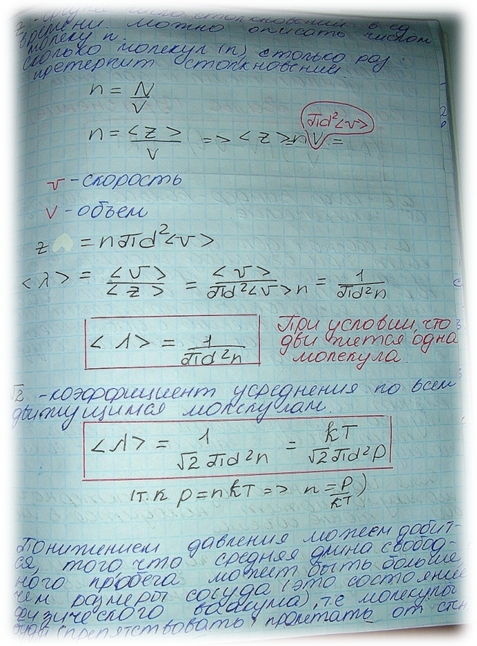 времени можно описать числом
молекул.
Сколько молекул (n), столько раз
претерпит столкновений
n = N/V
n = <z>/V => <z> = nV =
πd²<v>
v - скорость
V - объем
z = nπd²<v>
<λ> = <v>/<z> = <v>/πd²<v>n = 1/πd²n
<λ> = 1/πd²n
При условии, что
движется одна
молекула.
√2 - коэффициент усреднения по всем
движущимся молекулам.
<λ> = 1/√2πd²n = kT/√2πd²P
(т.к P = nkT => n = P/kT)
Понижением давления можем добит-
ся, того что средняя длина свобод-
ного пробега может быть больше
чем размеры сосуда (это состояние
физического вакуума), т.е молекулы
(препятствовать) пролетать от